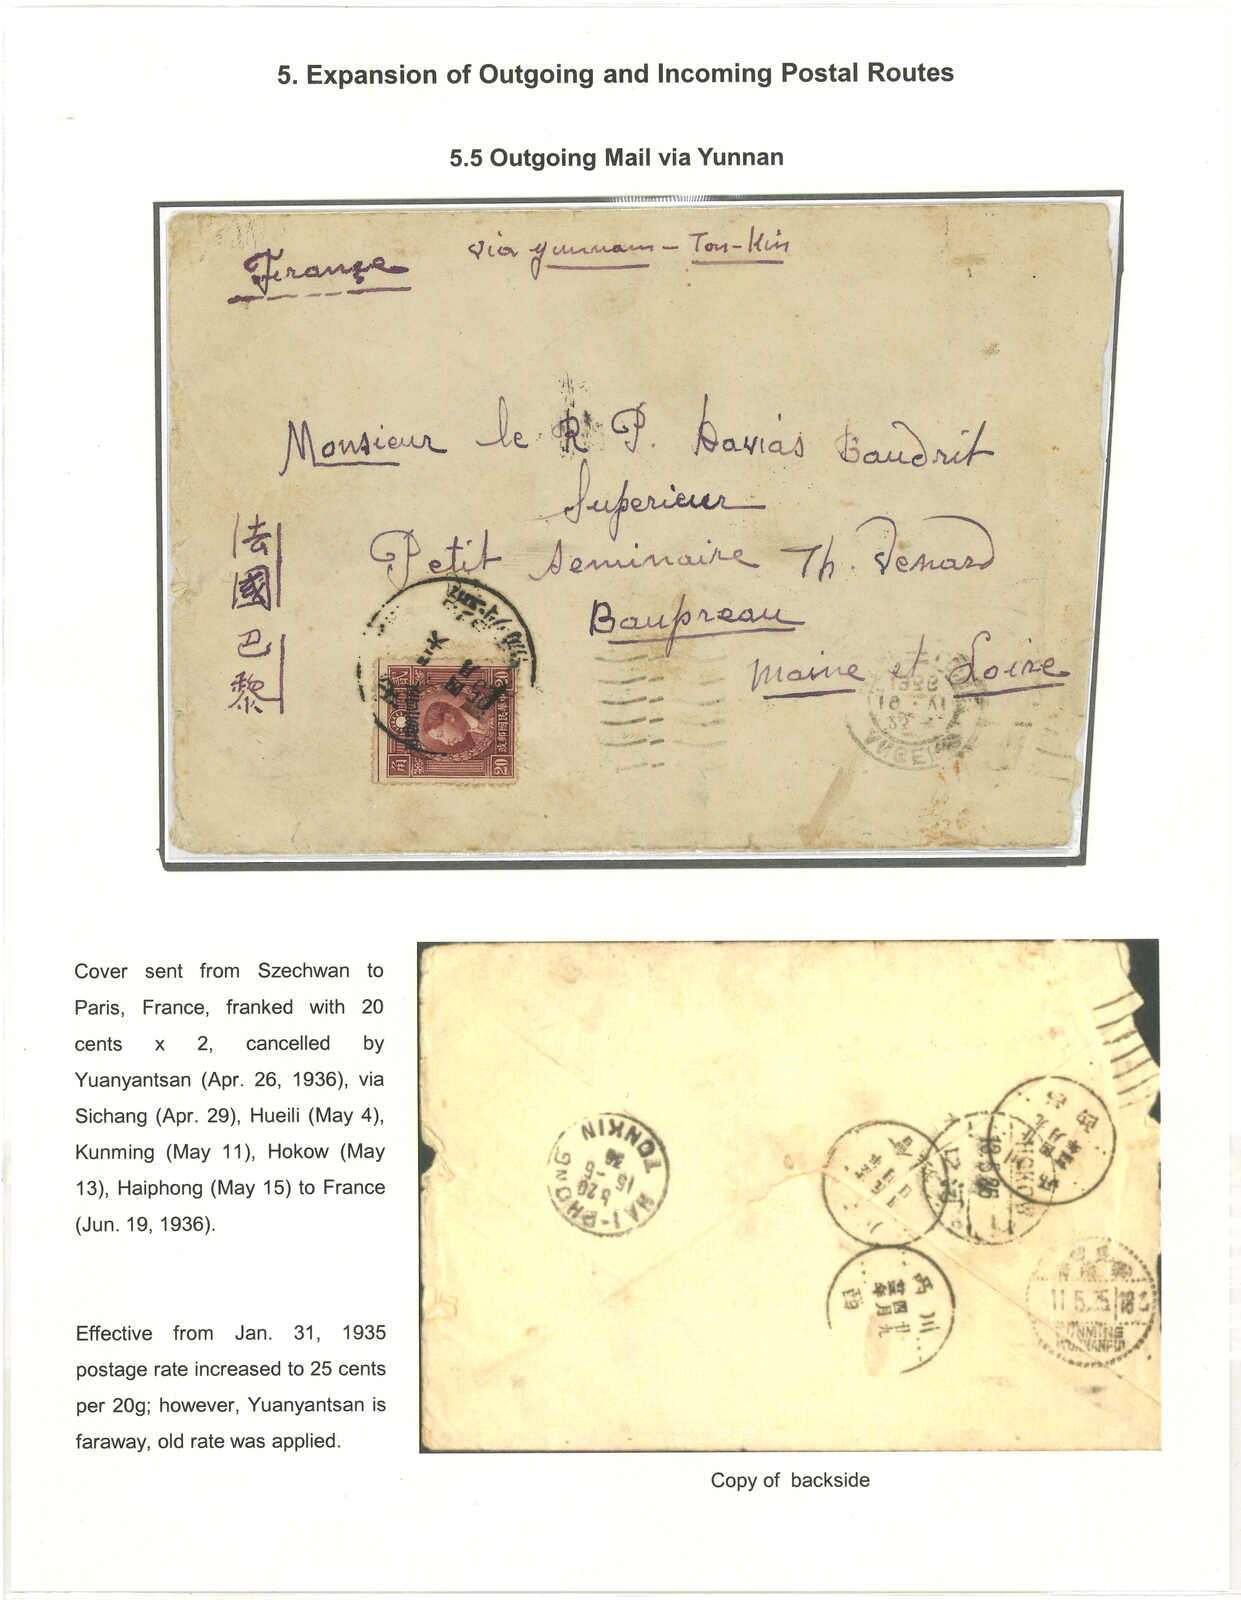 5. Expansion of Outgoing and Incoming Postal Routes
5.5 Outgoing Mail via Yunnan
France
via yunnam - Ton-Kin
Monsieur le R P. Davias Baudrit
Superieur
Petit Seminaire Th. Venard
Baupreau
Maine et Loire
法國巴黎
20
20
Cover sent from Szechwan to
Paris, France, franked with 20
cents x 2, cancelled by
Yuanyantsan (Apr. 26, 1936), via
Sichang (Apr. 29), Hueili (May 4),
Kunming (May 11), Hokow (May
13), Haiphong (May 15) to France
(Jun. 19, 1936).
Effective from Jan. 31, 1935
postage rate increased to 25 cents
per 20g; however, Yuanyantsan is
faraway, old rate was applied.
HAI-PHONG
TONKIN
11.5.25
Copy of backside